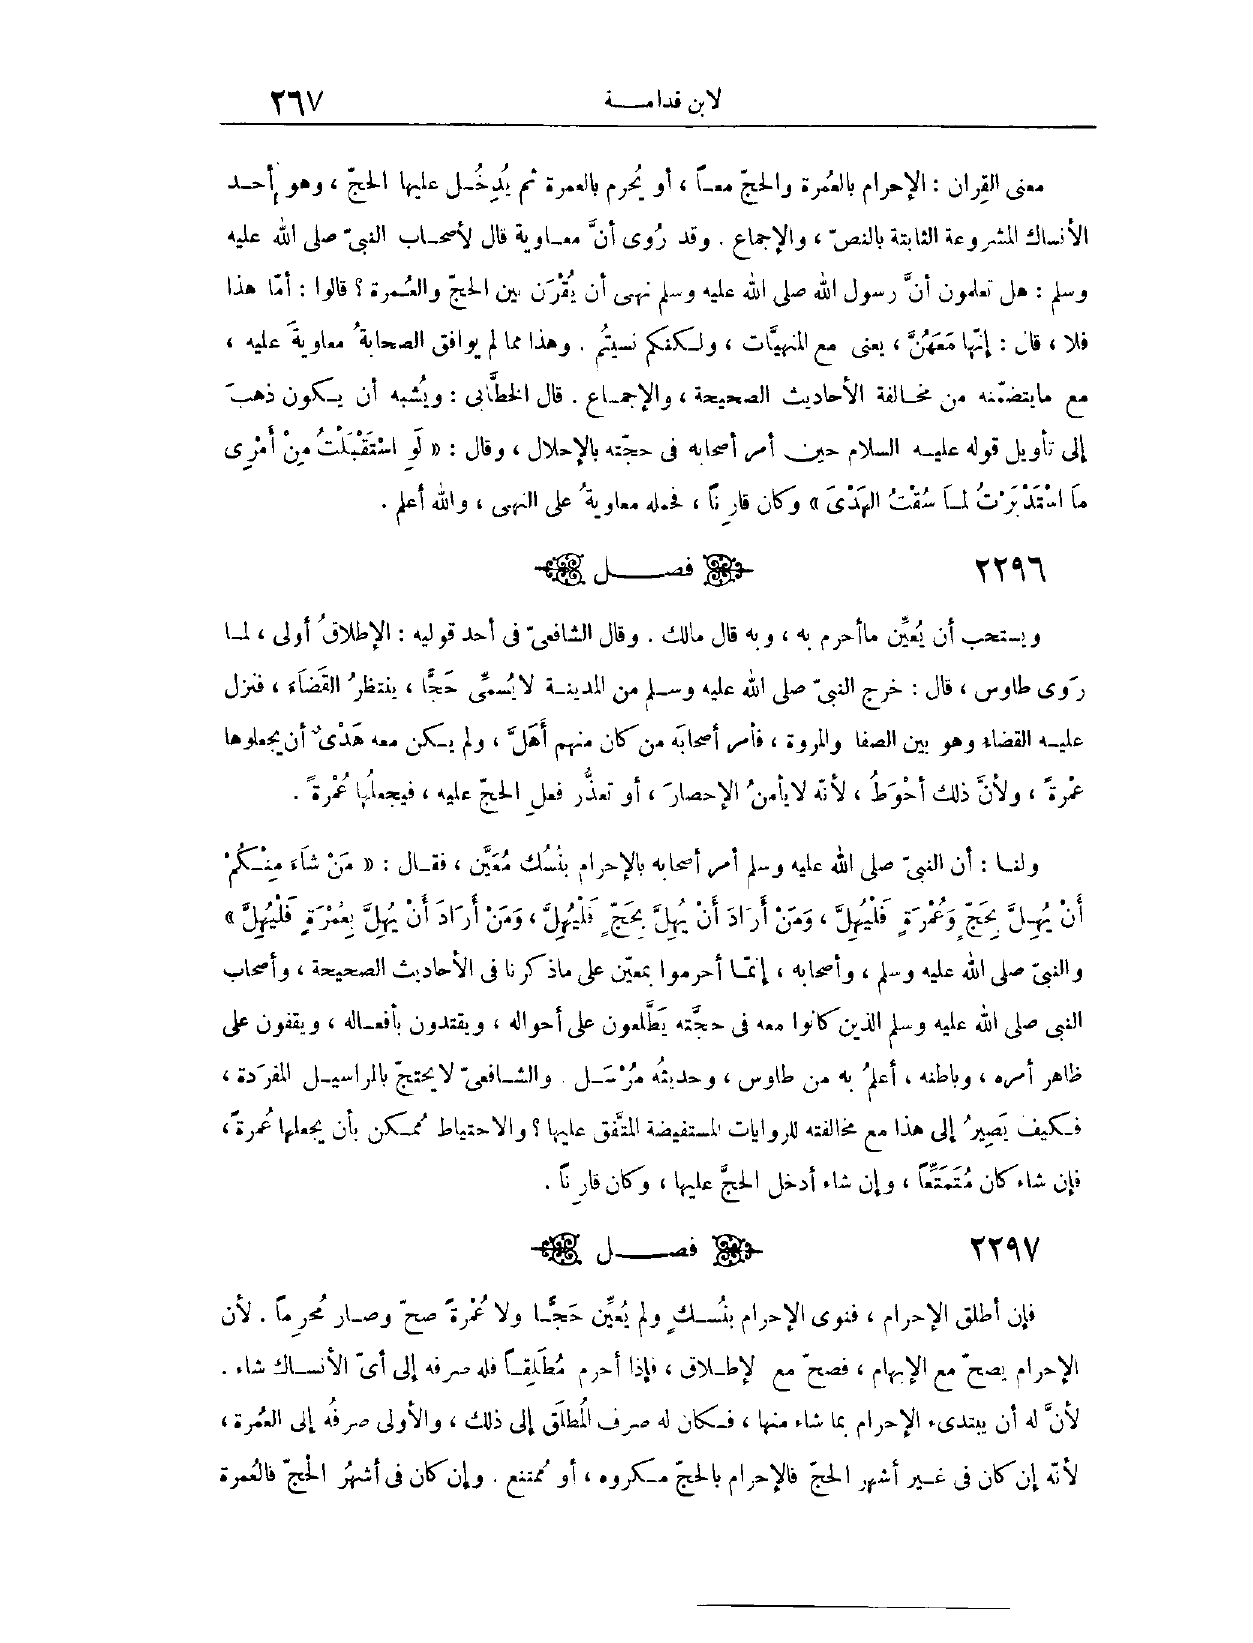 لابن قدامـــة ٢٦٧
معنى القِران : الإحرام بالعُمرة والحجّ معـاً ، أو يُحرم بالعمرة ثم يُدخِـل عليها الحجّ ، وهو أحـد
الأنساك المشروعة الثابتة بالنصّ ، والإجماع . وقد رُوى أنَّ معـاوية قال لأصحـاب النبىّ صلى الله عليه
وسلم : هل تعلمون أنَّ رسول الله صلى الله عليه وسلم نهى أن يُقْرَن بين الحجّ والعُـمرة ؟ قالوا : أمّا هذا
فلا ، قال : إنّها مَعَهُنَّ ، يعنى مع المنهيَّات ، ولـكنكم نسيتُم . وهذا مما لم يوافق الصحابةُ معاويةَ عليه ،
مع مايتضمّنه من مخـالفة الأحاديث الصحيحة ، والإجمـاع . قال الخطَّابى : ويُشبه أن يـكون ذهبَ
إلى تأويل قوله عليـه السلام حين أمر أصحابه فى حجّته بالإحلال ، وقال : « لَوِ اسْتَقْبَلْتُ مِنْ أَمْرِى
مَا اسْتَدْبَرْتُ لمـَا سُقْتُ الهَدْىَ » وكان قارِناً ، فحمله معاويةُ على النهى ، والله أعلم .
٢٢٩٦ فصـــــل
ويستحب أن يُعيِّن ماأحرم به ، وبه قال مالك . وقال الشافعىّ فى أحد قوليه : الإطلاقُ أولى ، لمـا
رَوى طاوس ، قال : خرج النبىّ صلى الله عليه وسـلم من المدينـة لايُسمِّى حَجًّا ، ينتظرُ القَضَاءَ ، فنزل
عليـه القضاء وهو بين الصفا والمروة ، فأمر أصحابَه من كان منهم أَهَلَّ ، ولم يـكن معه هَدْىٌ أن يجعلوها
عُمْرةً ، ولأنَّ ذلك أحْوَطُ ، لأنّه لايأمنُ الإحصارَ ، أو تعذُّر فعلِ الحجّ عليه ، فيجعلُها عُمْرةً .
ولنـا : أن النبىّ صلى الله عليه وسلم أمر أصحابه بالإحرام بنُسُك مُعَيَّن ، فقـال : « مَنْ شَاءَ مِنْـكُمْ
أَنْ يُهِـلَّ بِحَجّ وَعُمْرَةٍ فَلْيُهِلَّ ، وَمَنْ أَرَادَ أَنْ يُهِلَّ بِحَجّ فَلْيُهِلَّ ، وَمَنْ أَرَادَ أَنْ يُهِلَّ بِعُمْرَةٍ فَلْيُهِلَّ »
والنبىّ صلى الله عليه وسلم ، وأصحابه ، إنمّـا أحرموا بمعيّن على ماذكرنا فى الأحاديث الصحيحة ، وأصحاب
النبى صلى الله عليه وسلم الذين كانوا معه فى حجَّته يَطَّلعون على أحواله ، ويقتدون بأفعـاله ، ويقفون على
ظاهر أمره ، وباطنه ، أعلمُ به من طاوس ، وحديثُه مُرْسَـل . والشـافعىّ لايحتجّ بالمراسيـل المفرَدة ،
فـكيف يَصِيرُ إلى هذا مع مخالفته للروايات المستفيضة المتَّفق عليها ؟ والاحتياط مُمـكن بأن يجعلها عُمرةً ،
فإن شاء كان مُتَمَتِّعاً ، وإن شاء أدخل الحجَّ عليها ، وكان قارِناً .
٢٢٩٧ فصـــــل
فإن أطلق الإحرام ، فنوى الإحرام بنُسـكٍ ولم يُعيِّن حَجًّـا ولا عُمْرةً صحّ وصـار مُحرِماً . لأن
الإحرام يصحّ مع الإبهام ، فصحّ مع لإطـلاق ، فإذا أحرم مُطلَقـاً فله صرفه إلى أىّ الأنسـاك شاء .
لأنَّ له أن يبتدىء الإحرام بما شاء منها ، فـكان له صرف المُطلَق إلى ذلك ، والأولى صرفُه إلى العُمرة ،
لأنّه إن كان فى غـير أشهر الحجّ فالإحرام بالحجّ مـكروه ، أو مُمتنع . وإن كان فى أشهُر الحجّ فالعُمرة